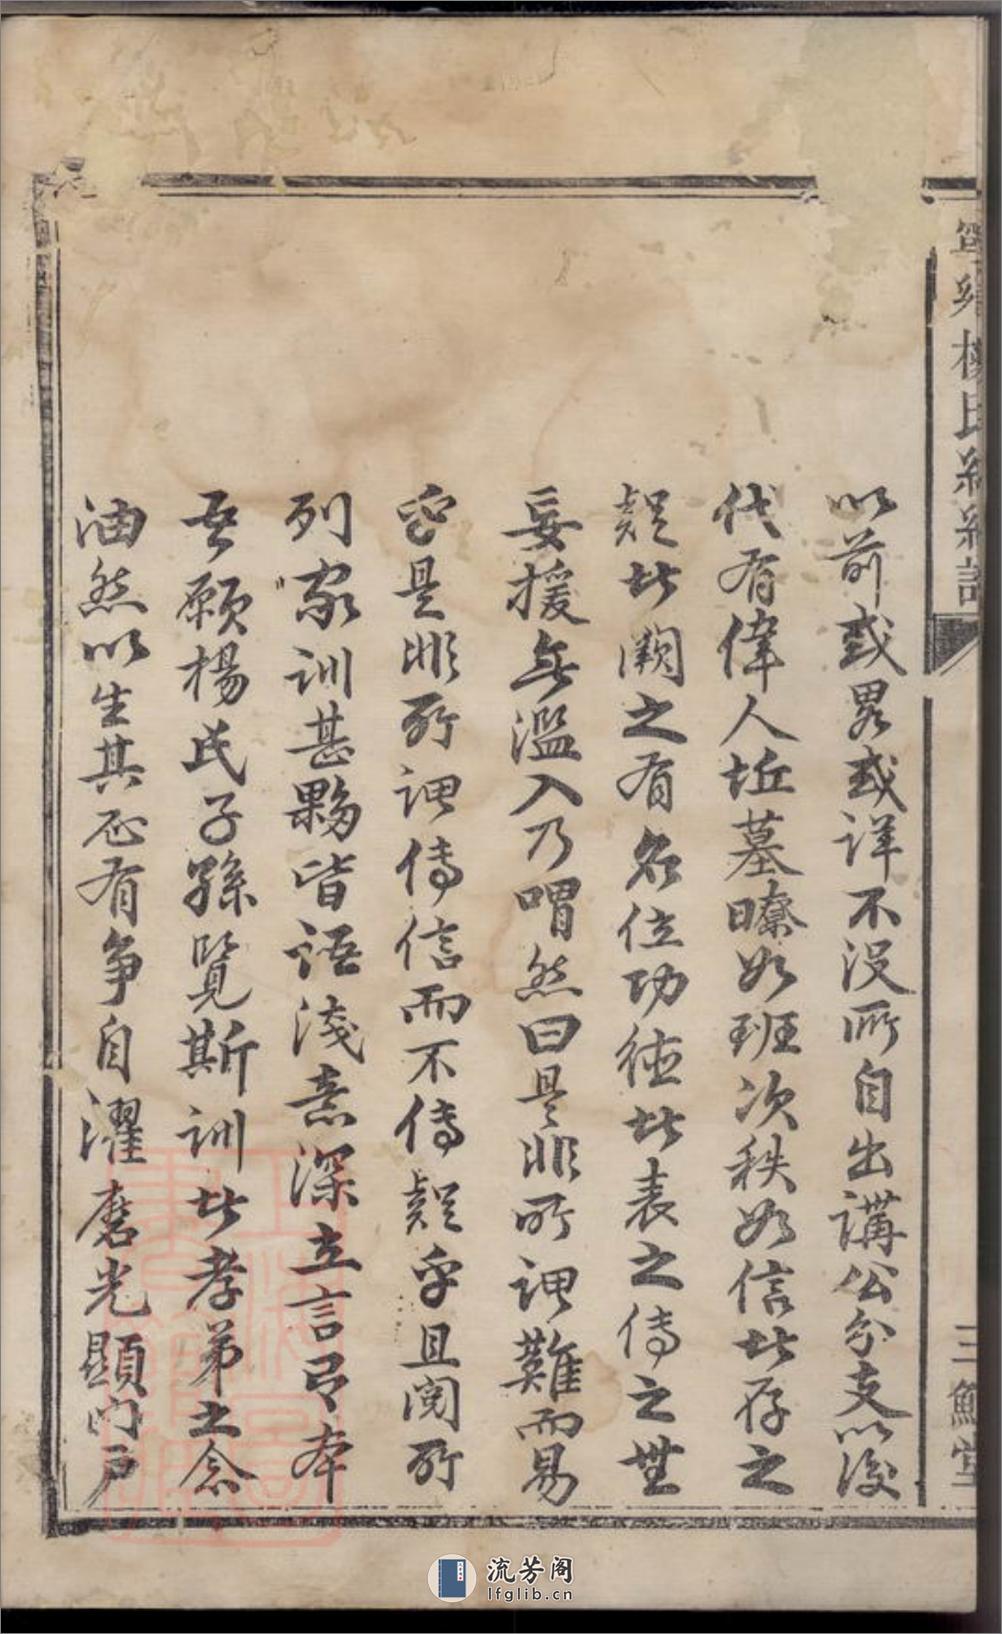 楊氏
三鱣堂
以前或畧或詳不没所自出講公分支以後
代有偉人坵墓瞭如班次秩如信者存之
疑者闕之有名位功德者表之傳之無
妄援無濫入乃喟然曰是非所謂難而易
是非所謂傳信而不傳疑乎且閱所
列家訓甚夥皆語淺意深立言有本
吾願楊氏子孫覽斯訓者孝弟之念
油然以生其必有爭自濯磨光顯門戶
流芳阁
lfglib.cn